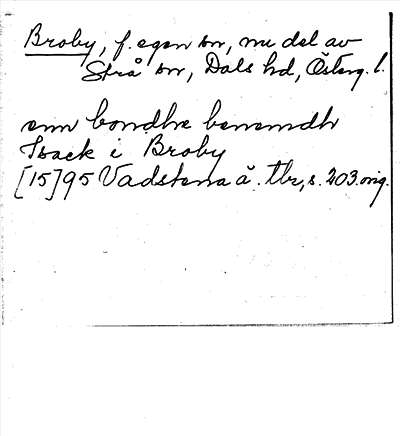 Broby, f. egen sn, nu del av
Strå sn, Dals hd, Österg. l.
enn bondhe benemdh
Isack i Broby
[15]95 Vadstena ä. tbr, s. 203 orig.